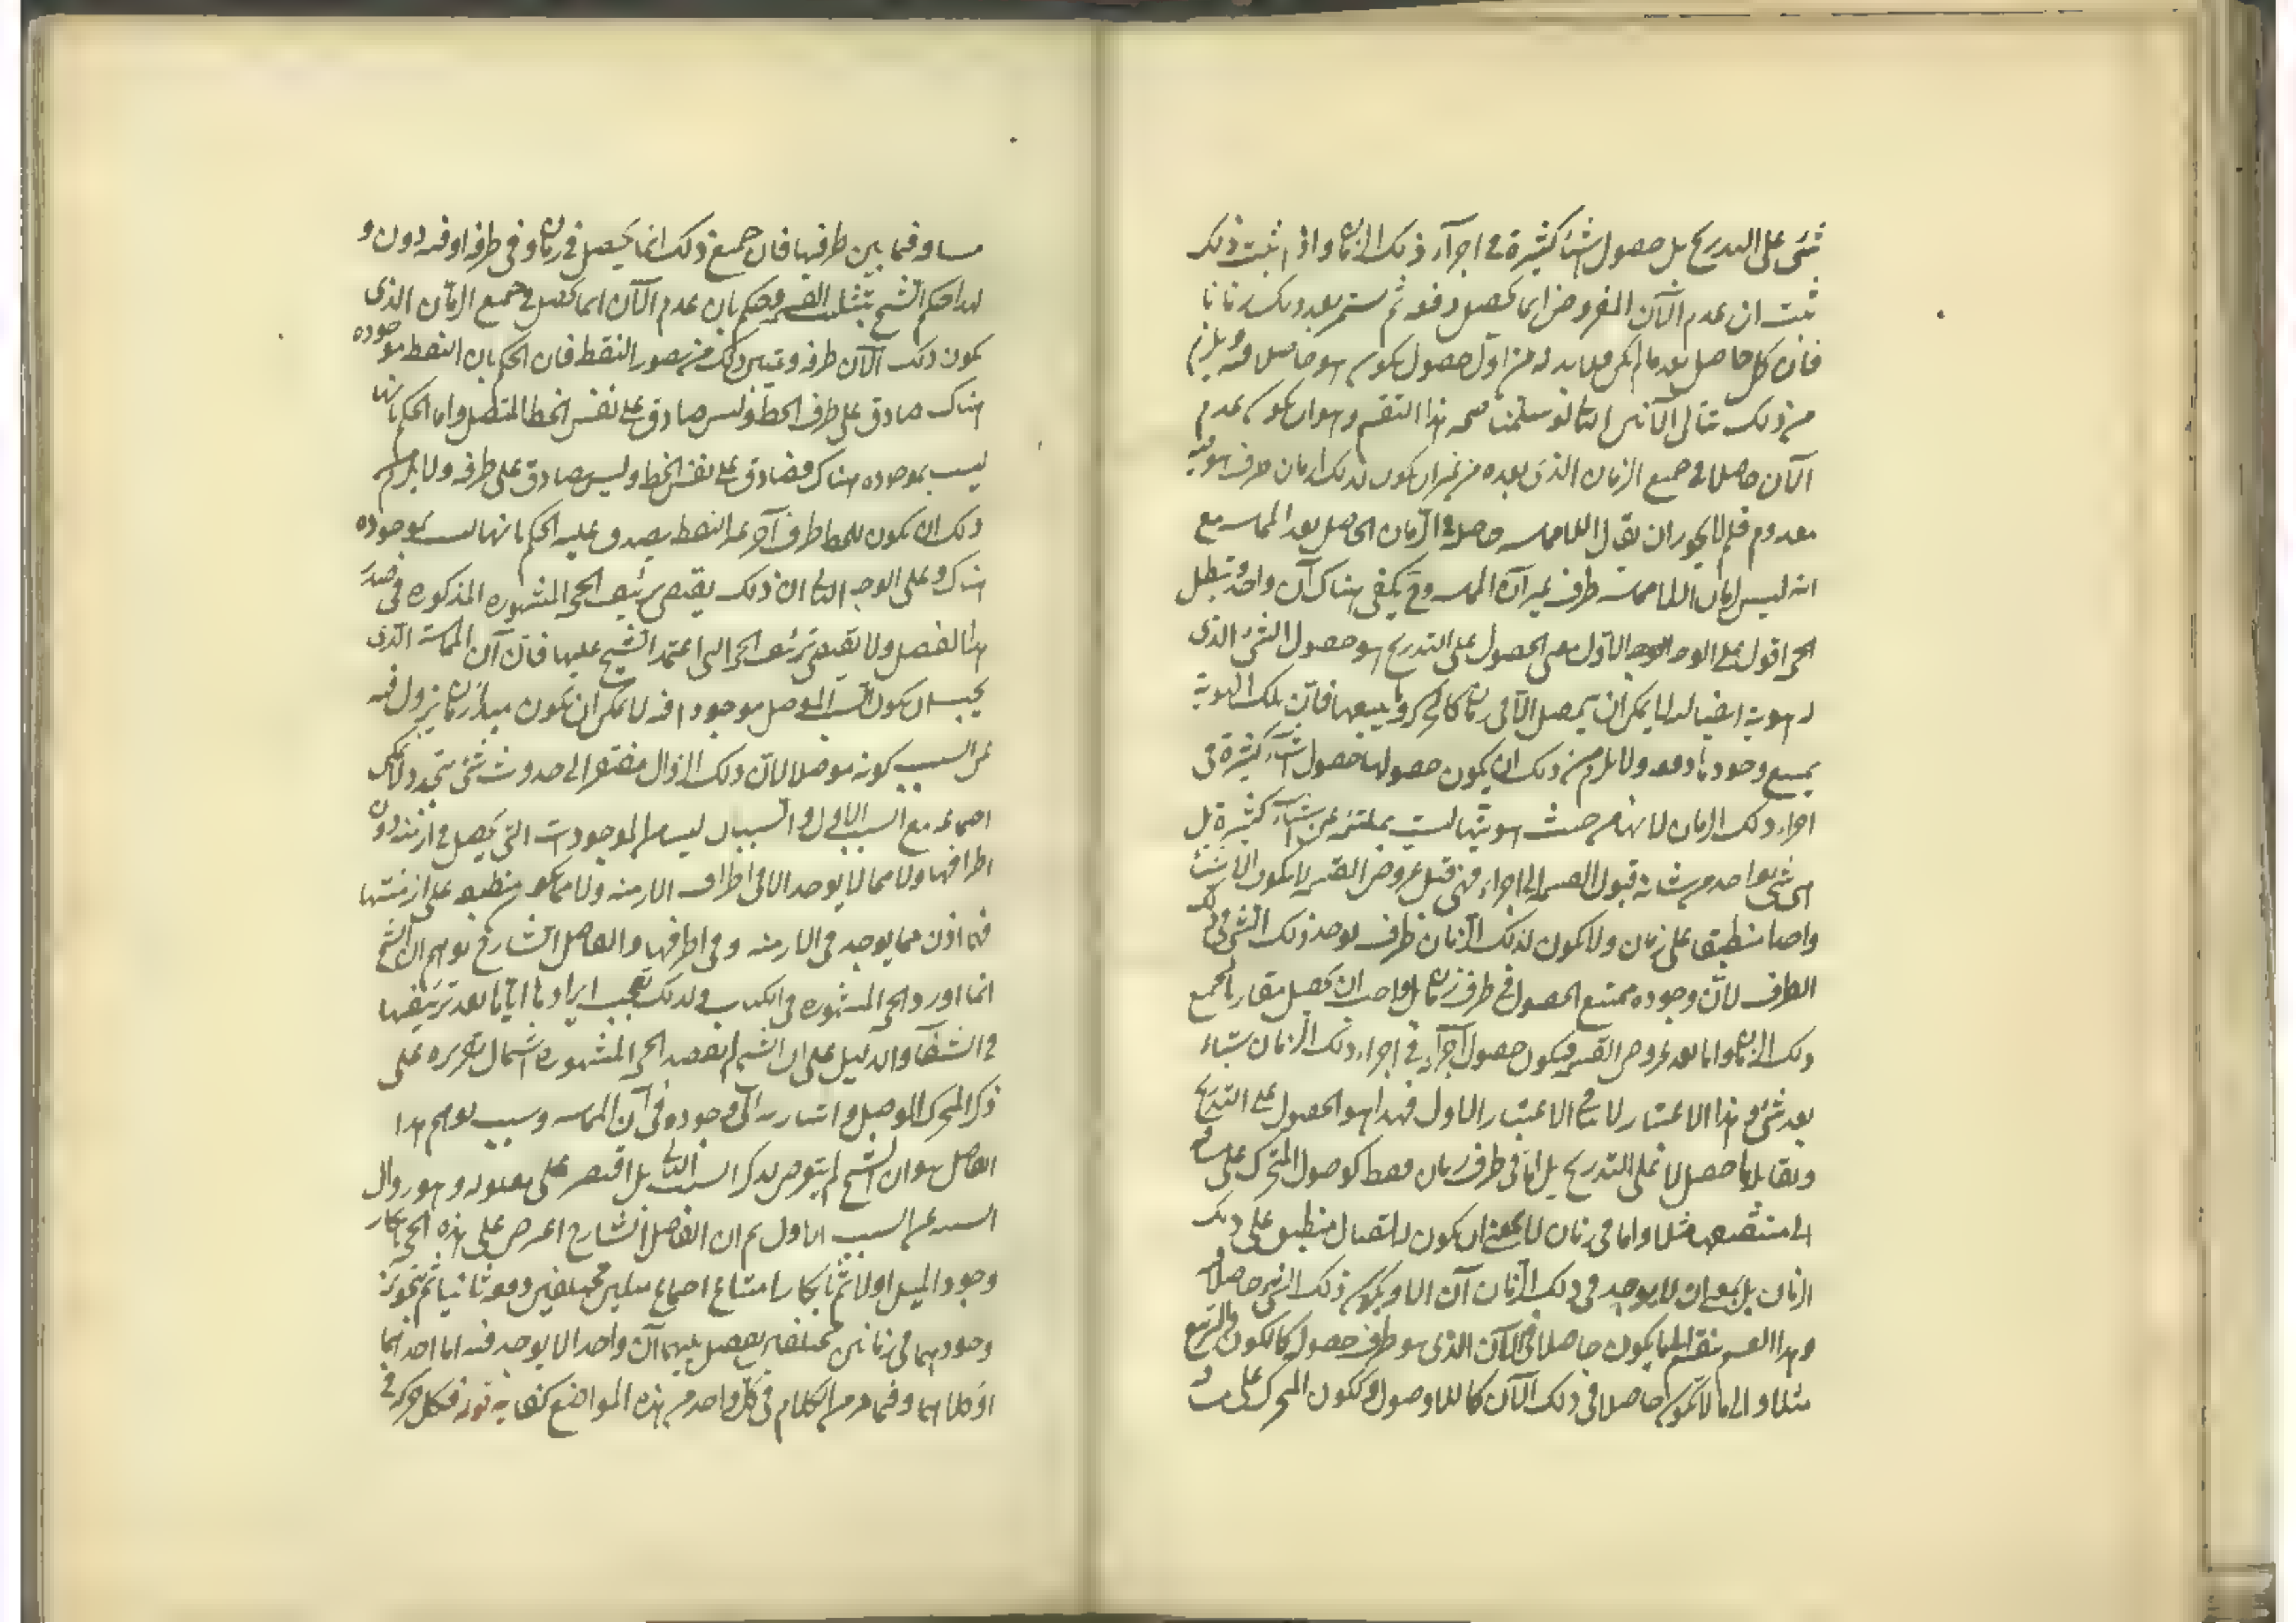 شئ على التدريج بل حصول اشياء كثيرة في اجزاء ذلك الزمان واذا ثبت ذلك
ثبت ان عدم الآن المفروض انما يحصل دفعه ثم يستمر بعد ذلك زمانا
فان كل حاصل بعد ما لم يكن فلا بد له من اول حصول يكون هو حاصلا فيه ويلزم
من ذلك تتالى الآنين الثانى لو سلمنا صحه هذا التقسم وهو ان يكون عدم
الآن حاصلا في جميع الزمان الذى بعده من غير ان يكون لذلك الزمان طرف هو فيه
معدوم فلم لا يجوز ان يقال اللامماسه حاصله في الزمان الحاصل بعد المماسه مع
انه ليس لزمان اللامماسة طرف غير آن المماسه وح يكفى هناك آن واحد وتبطل
الحجة اقول على الوجه الاول معنى الحصول على التدريج هو حصول الشئ الذى
له هوية اتصالية لا يمكن ان يحصل الا في زمان كالحركه وما يتبعها فان تلك الهوية
يمتنع وجودها دفعه ولا يلزم من ذلك ان يكون حصولها حصول اشياء كثيرة في
اجزاء ذلك الزمان لانها من حيث هويتها ليست بملتئمة عن اشياء كثيرة بل
هى شئ واحد من شانه قبول القسمة الى اجزاء فهى قبل عروض القسمه لا يكون الا شيئا
واحدا منطبقا على زمان ولا يكون لذلك الزمان طرف يوجد ذلك الشئ في ذلك
الطرف لان وجوده ممتنع الحصول في طرف زمان بل واجب ان يحصل مقارنا لجميع
ذلك الزمان واما بعد عروض القسمة فيكون حصول اجزائه في اجزاء ذلك الزمان شيئا
بعد شئ وهذا الاعتبار لا ينافى الاعتبار الاول فهذا هو الحصول على التدريج
ويقابله ما حصل لا على التدريج بل اما في طرف زمان فقط كوصول المتحرك على مسافه
الى منتصفها مثلا واما في زمان لا بمعنى ان يكون له اتصال منطبق على ذلك
الزمان بل بمعنى ان لا يوجد في ذلك الزمان آن الا ويكون ذلك الشئ حاصلا فيه
وهذا القسم ينقسم الى ما يكون حاصلا في الآن الذى هو طرف حصوله كالكون والتربيع
مثلا والى ما لا يكون حاصلا في ذلك الآن كاللاوصول وككون المتحرك على مسافه
مسافه فيما بين طرفيها فان جميع ذلك انما يحصل في زمان وفي طرفه او فيه دون و
لهذا حكم الشيخ بتثليث القسمه وحكم بان عدم الآن انما يحصل في جميع الزمان الذى
يكون ذلك الآن طرفه وتبين ذلك من تصور النقط فان الحكم بان النقط موجوده
هناك صادق على طرف الخط وليس صادق على نفس الخط المتصل واما الحكم بانها
ليست بموجوده هناك فصادق على نفس الخط وليس صادق على طرفه ولا يلزم من
ذلك ان يكون للخط طرف آخر غير النقط يصدق عليه الحكم بانها ليست بموجوده
هناك وعلى الوجه الثانى ان ذلك يقتضى تزئيف الحجة المشهوره المذكوره في صدر
هذا الفصل ولا يقتضى تزئيف الحجة التى اعتمد الشيخ عليها فان آن المماسة الذى
يجب ان يكون السبب الموصل موجودا فيه لا يمكن ان يكون مبدأ زمان يزول فيه
عن السبب كونه موصلا لان ذلك الزوال مفتقر الى حدوث شئ يتجدد لا يمكن
اجتماعه مع السبب الاول والسببان ليسا من الموجودات التى يحصل في ازمنة دون
اطرافها ولا مما لا يوجد الا في اطراف الازمنه ولا مما يكون منطبقه على ازمنتها
فهما اذن مما يوجد في الازمنه وفي اطرافها والفاضل الشارح توهم ان الشيخ
انما اورد الحجة المشهوره في الكتاب ولذلك تعجب ايراده اياها بعد تزئيفها
في الشفا والدليل على ان الشيخ لم يقصد الحجة المشهوره اشتمال تقريره على
ذكر المحرك الموصل واشارته الى وجوده في آن المماسه وسبب توهم هذا
الفاضل هو ان الشيخ لم يتعرض لذكر السبب الثانى بل اقتصر على معلوله وهو زوال
السببيه عن السبب الاول ثم ان الفاضل الشارح اعترض على هذه الحجة بانكار
وجود الميل اولا ثم بانكار امتناع اجتماع ميلين مختلفين دفعه ثانيا ثم بتجويز
وجودهما في زمانين مختلفين يفصل بينهما آن واحد لا يوجد فيه اما احدهما
او كلاهما وفيما مر من الكلام في كل واحد من هذه المواضع كفايه قوله فكل حركه في